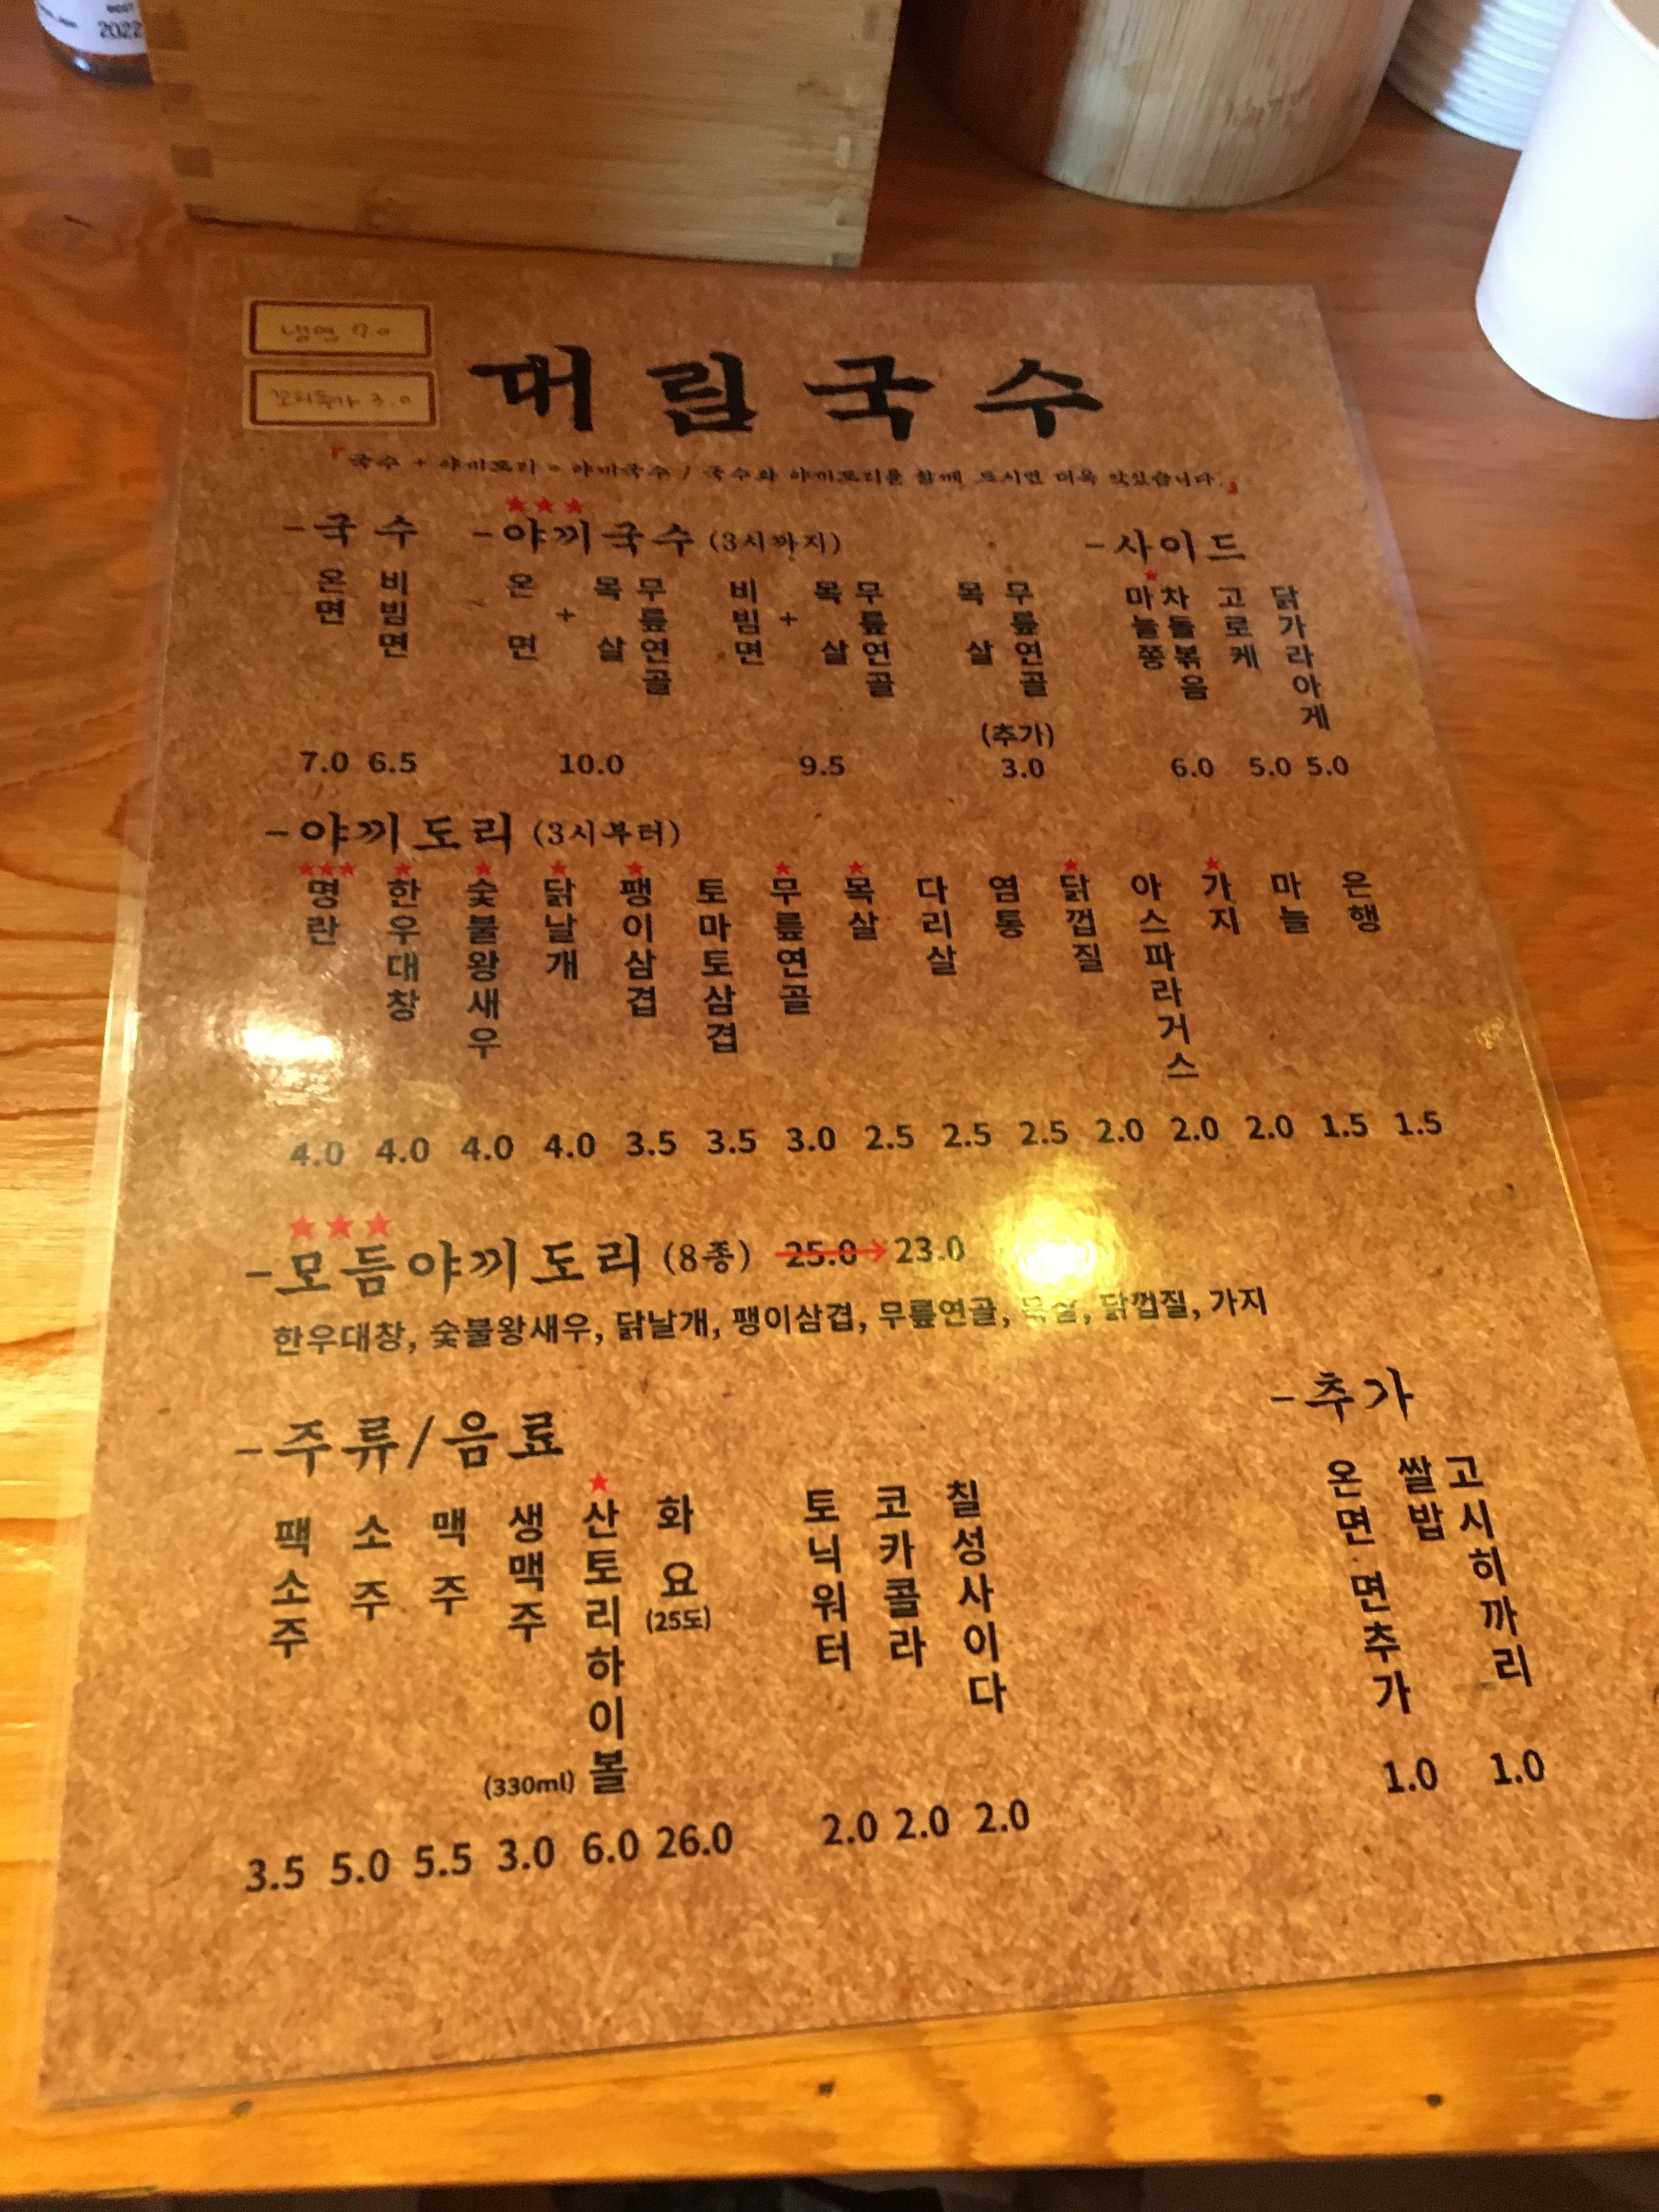 2022
냉면 7.0
꼬리튀김 3.0
대림국수
『국수 + 야끼도리 = 야끼국수 / 국수와 야끼도리를 함께 드시면 더욱 맛있습니다.』
-국수
온면 7.0
비빔면 6.5
-야끼국수 (3시까지)
온면 + 목살 무릎연골 10.0
비빔면 + 목살 무릎연골 9.5
목살 무릎연골 (추가) 3.0
-사이드
마늘쫑 차돌볶음 6.0
고로케 5.0
닭가라아게 5.0
-야끼도리 (3시부터)
명란 4.0
한우대창 4.0
숯불왕새우 4.0
닭날개 4.0
팽이삼겹 3.5
토마토삼겹 3.5
무릎연골 3.0
목살 2.5
다리살 2.5
염통 2.5
닭껍질 2.0
아스파라거스 2.0
가지 2.0
마늘 1.5
은행 1.5
-모듬야끼도리 (8종) 25.0 → 23.0
한우대창, 숯불왕새우, 닭날개, 팽이삼겹, 무릎연골, 목살, 닭껍질, 가지
-주류/음료
팩소주 3.5
소주 5.0
맥주 5.5
생맥주 (330ml) 3.0
산토리하이볼 6.0
화요 (25도) 26.0
토닉워터 2.0
코카콜라 2.0
칠성사이다 2.0
-추가
온면 면추가
쌀밥 1.0
고시히까리 1.0